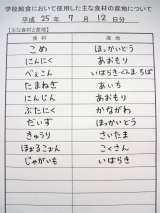 学校給食において使用した主な食材の産地について
平成 25年 7月 12日分
【主な食材と産地】
食材 産地
こめ ほっかいどう
にんにく あおもり
べぇこん いばらき・ぐんま・ちば
たまねぎ あいち
にんじん あおもり
ぶたにく かながわ
だいず ほっかいどう
きゅうり さいたま
ほぉるこぉん さくさん
じゃがいも いばらき